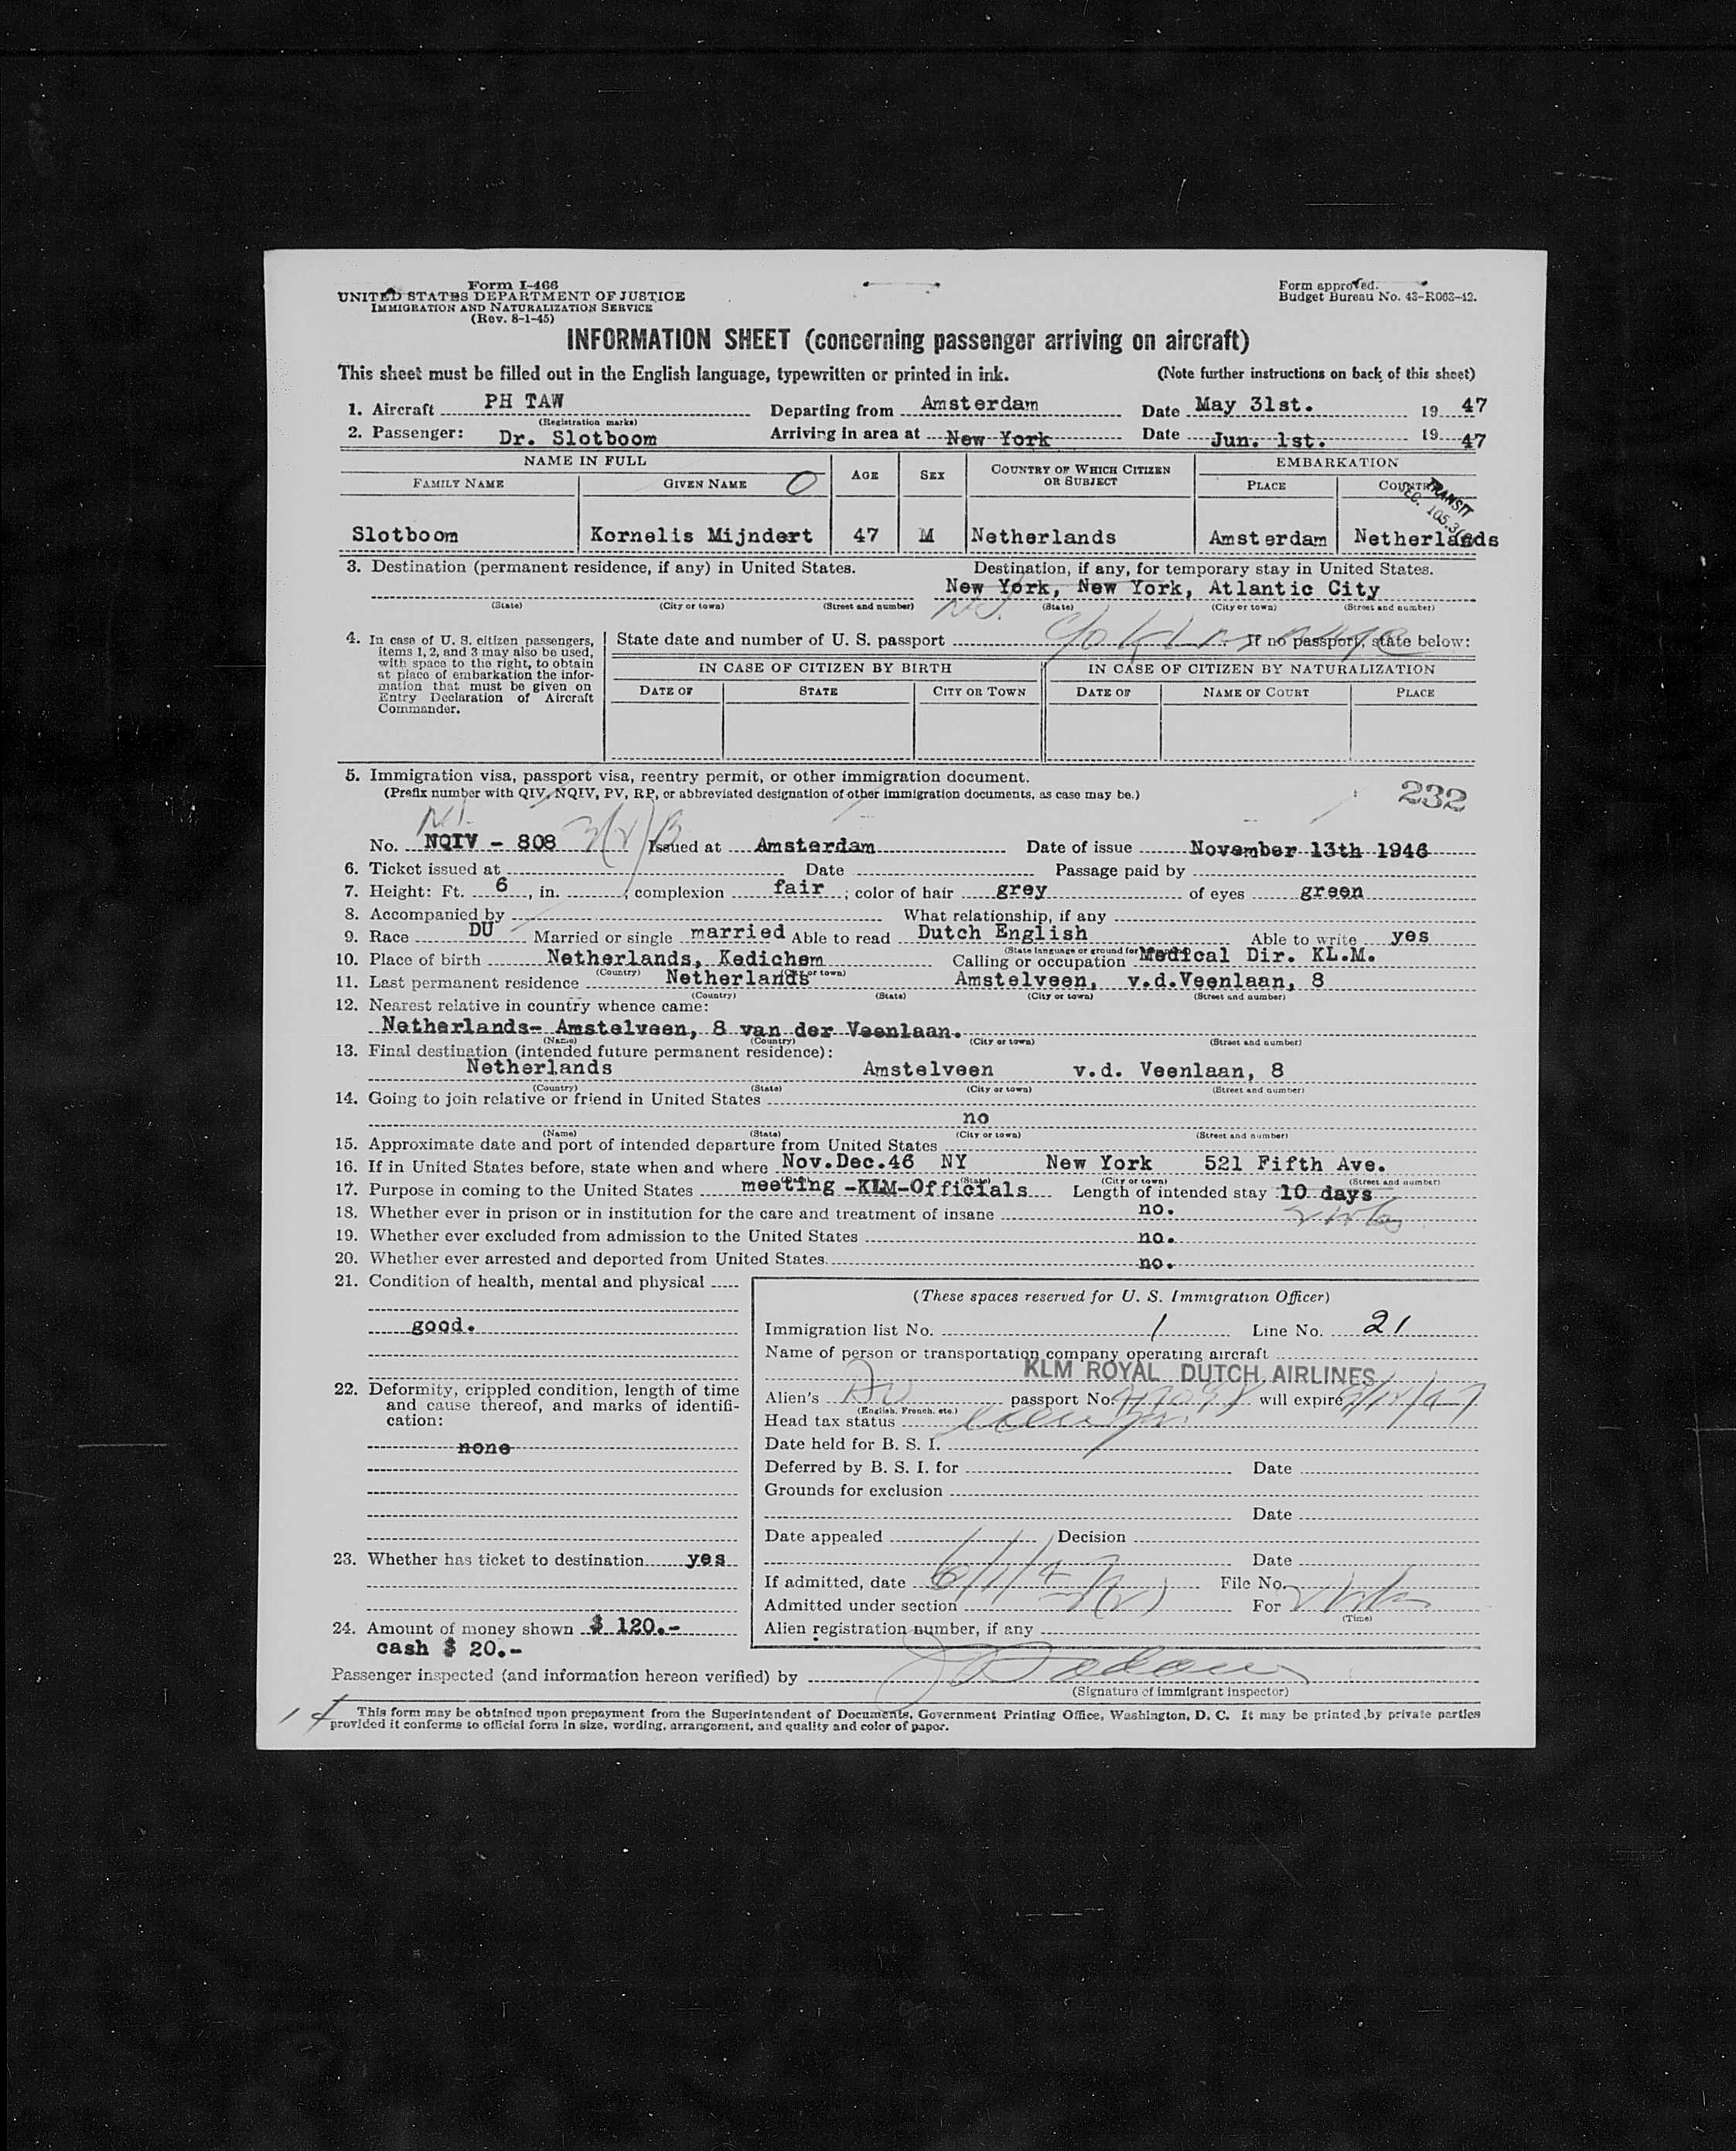 Form I-466
UNITED STATES DEPARTMENT OF JUSTICE
IMMIGRATION AND NATURALIZATION SERVICE
(Rev. 8-1-45)
Form approved.
Budget Bureau No. 43-R063-42.
INFORMATION SHEET (concerning passenger arriving on aircraft)
This sheet must be filled out in the English language, typewritten or printed in ink. (Note further instructions on back of this sheet)
1. Aircraft PH TAW Departing from Amsterdam Date May 31st. 19 47
(Registration marks)
2. Passenger: Dr. Slotboom Arriving in area at New York Date Jun. 1st. 19 47
NAME IN FULL AGE SEX COUNTRY OF WHICH CITIZEN OR SUBJECT EMBARKATION
FAMILY NAME GIVEN NAME O PLACE COUNTRY
TRANSIT
SEC. 105.3
Slotboom Kornelis Mijndert 47 M Netherlands Amsterdam Netherlands
3. Destination (permanent residence, if any) in United States. Destination, if any, for temporary stay in United States.
New York, New York, Atlantic City
(State) (City or town) (Street and number) (State) (City or town) (Street and number)
N.J.
4. In case of U. S. citizen passengers, items 1, 2, and 3 may also be used, with space to the right, to obtain at place of embarkation the information that must be given on Entry Declaration of Aircraft Commander.
State date and number of U. S. passport If no passport, state below:
IN CASE OF CITIZEN BY BIRTH IN CASE OF CITIZEN BY NATURALIZATION
DATE OF STATE CITY OR TOWN DATE OF NAME OF COURT PLACE
5. Immigration visa, passport visa, reentry permit, or other immigration document.
(Prefix number with QIV, NQIV, PV, RP, or abbreviated designation of other immigration documents, as case may be.)
232
No. NQIV - 808 3(2) B Issued at Amsterdam Date of issue November 13th 1946
6. Ticket issued at Date Passage paid by
7. Height: Ft. 6, in. ; complexion fair ; color of hair grey of eyes green
8. Accompanied by What relationship, if any
9. Race DU Married or single married Able to read Dutch English Able to write yes
10. Place of birth Netherlands, Kedichem Calling or occupation Medical Dir. KL.M.
(Country) (City or town)
11. Last permanent residence Netherlands Amstelveen, v.d.Veenlaan, 8
(Country) (State) (City or town) (Street and number)
12. Nearest relative in country whence came:
Netherlands- Amstelveen, 8 van der Veenlaan.
(Name) (Country) (City or town) (Street and number)
13. Final destination (intended future permanent residence):
Netherlands Amstelveen v.d. Veenlaan, 8
(Country) (State) (City or town) (Street and number)
14. Going to join relative or friend in United States
no
(Name) (State) (City or town) (Street and number)
15. Approximate date and port of intended departure from United States
16. If in United States before, state when and where Nov.Dec.46 NY New York 521 Fifth Ave.
(State) (City or town) (Street and number)
17. Purpose in coming to the United States meeting -KLM-Officials Length of intended stay 10 days
18. Whether ever in prison or in institution for the care and treatment of insane no.
19. Whether ever excluded from admission to the United States no.
20. Whether ever arrested and deported from United States. no.
21. Condition of health, mental and physical
good.
22. Deformity, crippled condition, length of time and cause thereof, and marks of identification:
none
23. Whether has ticket to destination yes
24. Amount of money shown $ 120.-
cash $ 20.-
(These spaces reserved for U. S. Immigration Officer)
Immigration list No. 1 Line No. 21
Name of person or transportation company operating aircraft
KLM ROYAL DUTCH AIRLINES
Alien's Du passport No. will expire
(English, French, etc.)
Head tax status
Date held for B. S. I.
Deferred by B. S. I. for Date
Grounds for exclusion
Date
Date appealed Decision
Date
If admitted, date 6/1/47 File No.
Admitted under section 3(2) For
(Time)
Alien registration number, if any
Passenger inspected (and information hereon verified) by
(Signature of immigrant inspector)
This form may be obtained upon prepayment from the Superintendent of Documents, Government Printing Office, Washington, D. C. It may be printed by private parties
provided it conforms to official form in size, wording, arrangement, and quality and color of paper.